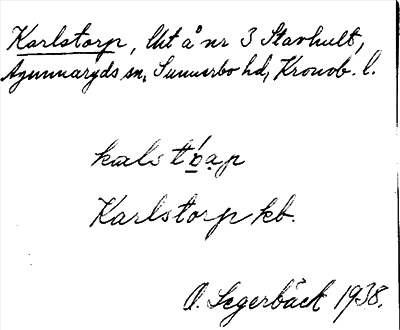 Karlstorp, lht å nr 3 Stavhult,
Agunnaryds sn, Sunnerbo hd, Kronob. l.
Karlstorp kb.
O. Segerbäck 1938.